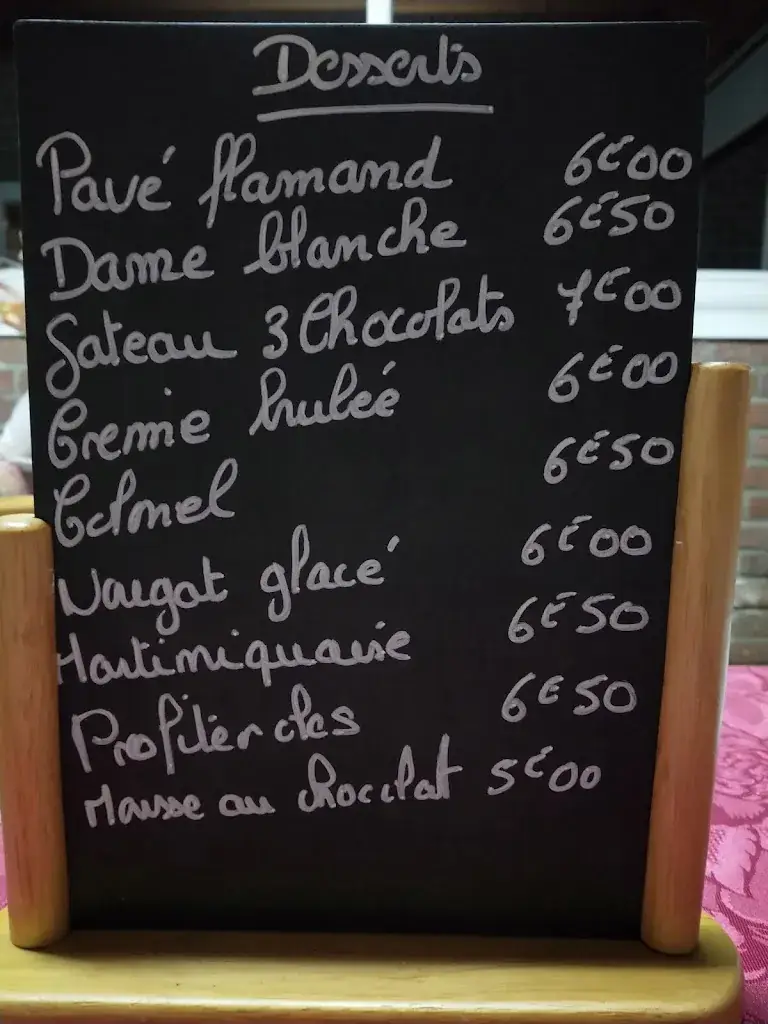 Desserts
Pavé flamand 6€00
Dame blanche 6€50
Gateau 3 Chocolats 7€00
Creme brulée 6€00
Colonel 6€50
Nougat glacé 6€00
Martiniquaise 6€50
Profiteroles 6€50
Mousse au chocolat 5€00